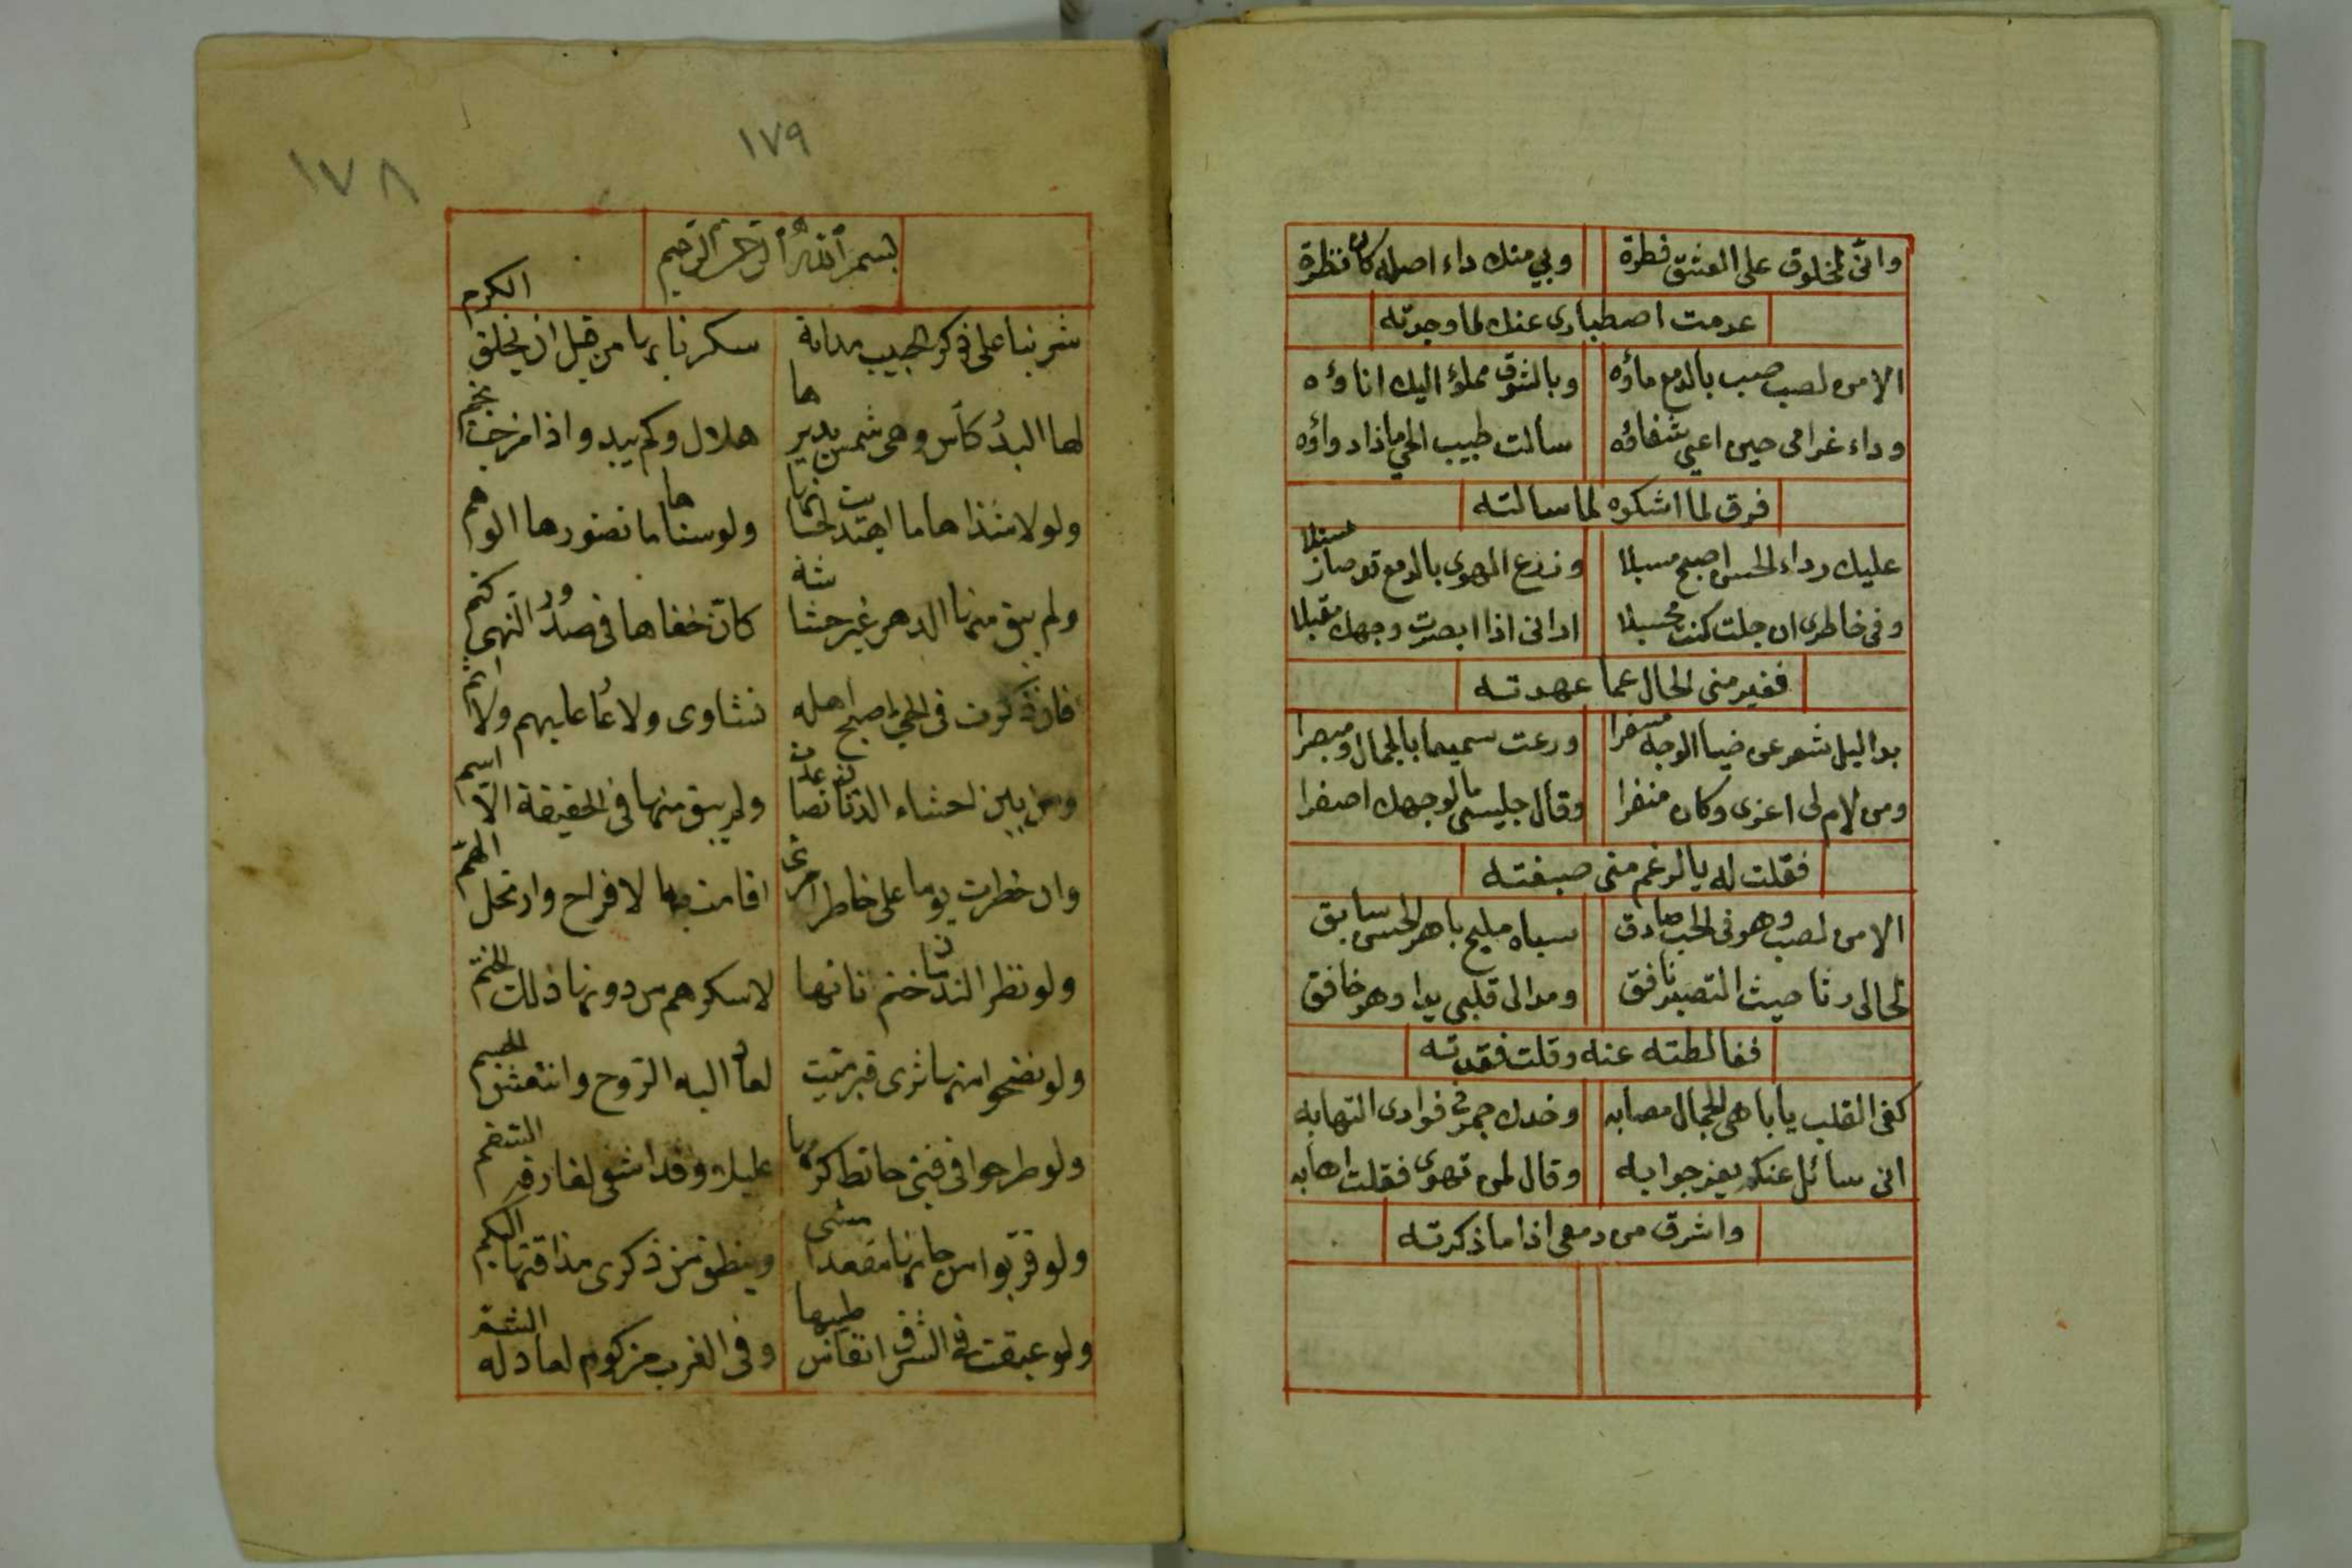 وانى لمخلوق على العشق فطرة وبي منك داء اصله كان نظرة
عدمت اصطبارى عنك لما وجدته
الا من لصب صب بالدمع ماؤه وبالشوق مملؤ اليك اناؤه
وداء غرامى حين اعيى شفاؤه سالت طبيب الحي ماذا دواؤه
فرق لما اشكوه لما سالته
عليك رداء الحسن اصبح مسبلا وزرع الهوى بالدمع قد صار
وفى خاطرى ان جلت كنت ارانى اذا ابصرت وجهك مقبلا
فغير منى الحال عما عهدته
بدا ليل شعر عن ضيا الوجه مسفرا ورعت سميعا بالجمال ومبصرا
ومن لام لى اغرى وكان منفرا وقال جليسى ما لوجهك اصفرا
فقلت له بالرغم منى صبغته
الا من لصب وهو فى الحب صادق سباه مليح باهر الحسن سابق
لحالى رثا حيث التصبر نافق ومد الى قلبى يدا وهو خافق
فغالطته عنه وقلت فقدته
كفى القلب يا باهى الجمال مصابه وخدك جمر فى فوادى التهابه
اتى سائل عنكم يعز جوابه وقال لمن تهوى فقلت اهابه
واشرق من دمعى اذا ما ذكرته
١٧٩
١٧٨
بسم الله الرحمن الرحيم
شربنا على ذكر الحبيب مدامة سكرنا بها من قبل ان يخلق الكرم
لها البدر كأس وهى شمس يديرها هلال وكم يبدو اذا مزجت نجم
ولولا شذاها ما اهتديت لحانها ولو سناها ما تصورها الوهم
ولم يبق منها الدهر غير حشاشة كان خفاها فى صدور النهى كتم
فان ذكرت فى الحي اصبح اهله نشاوى ولا عار عليهم ولا اثم
ومن بين احشاء الدنان تصاعدت ولم يبق منها فى الحقيقة الا اسم
وان خطرت يوما على خاطر امرئ اقامت بها لافراح وارتحل الهم
ولو نظر الندمان ختم انائها لاسكرهم من دونها ذلك الختم
ولو نضحوا منها ثرى قبر ميت لعاد اليه الروح وانتعش الجسم
ولو طرحوا فى فئ حائط كرمها عليلا وقد اشفى لفارقه السقم
ولو قربوا من حانها مقعدا مشى وينطق من ذكرى مذاقتها البكم
ولو عبقت فى الشرق انفاس طيبها وفى الغرب مزكوم لعاد له الشم